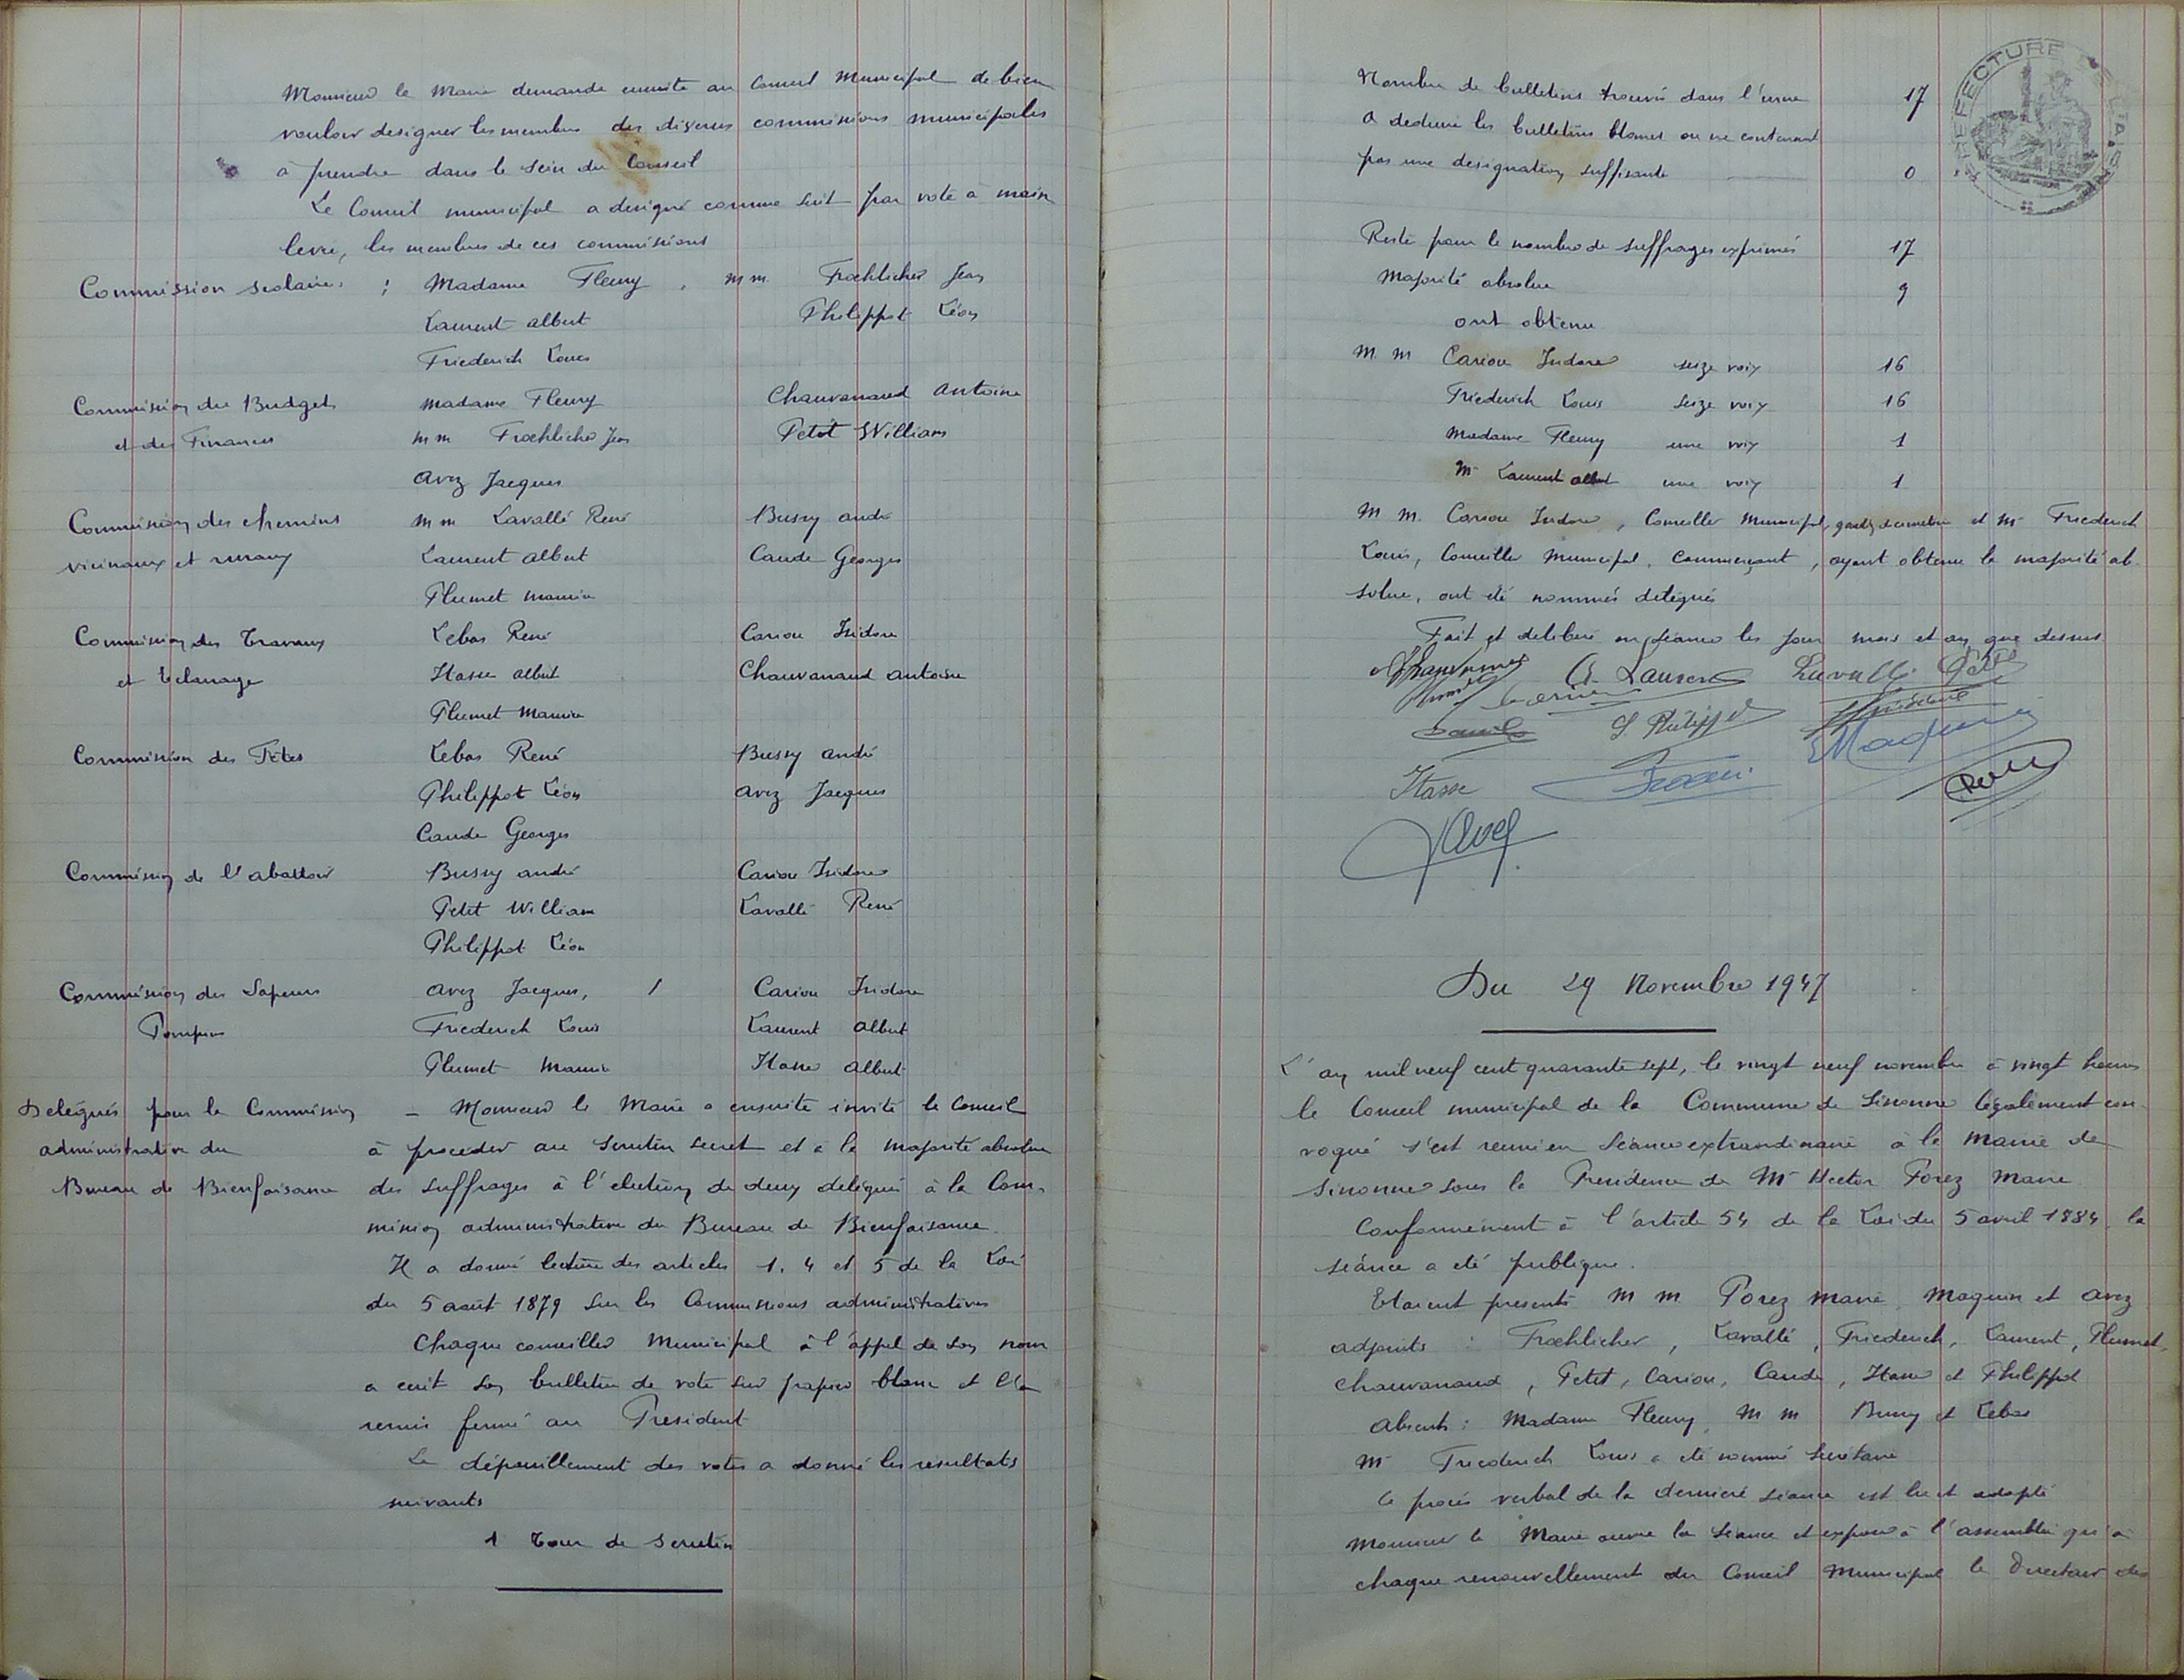 Monsieur le Maire demande ensuite au Conseil Municipal de bien
vouloir designer les membres des diverses commissions municipales
à prendre dans le sein du Conseil
Le Conseil municipal a designé comme suit par vote à main
levée, les membres de ces commissions
Commission scolaire : Madame Fleury, MM Froehlicher Jean
Laurent Albert Philippot Léon
Friederich Louis
Commission du Budget Madame Fleury Chauvanaud Antoine
et des Finances MM Froehlicher Jean Petit William
Avez Jacques
Commission des chemins MM Lavallé René Bussy André
vicinaux et ruraux Laurent Albert Caude Georges
Plumet Maurice
Commission des Travaux Lebas René Cariou Isidore
et Eclairage Hasse Albert Chauvanaud Antoine
Plumet Maurice
Commission des Fêtes Lebas René Bussy André
Philippot Léon Avez Jacques
Caude Georges
Commission de l'abattoir Bussy André Cariou Isidore
Petit William Lavallé René
Philippot Léon
Commission des Sapeurs Avez Jacques, Cariou Isidore
Pompiers Friederich Louis Laurent Albert
Plumet Maurice Hasse Albert
Delégués pour la Commission – Monsieur le Maire a ensuite invité le Conseil
administrative du à proceder au scrutin secret et à la majorité absolue
Bureau de Bienfaisance des suffrages à l'election de deux delégués à la Com-
mission administrative du Bureau de Bienfaisance.
Il a donné lecture des articles 1. 4 et 5 de la Loi
du 5 août 1879 sur les Commissions administratives
Chaque conseiller Municipal à l'appel de son nom
a ecrit son bulletin de vote sur papier blanc et l'a
remis fermé au President
Le dépouillement des votes a donné les resultats
suivants
1 Tour de scrutin
Nombre de bulletins trouvés dans l'urne 17
A deduire les bulletins blancs ou ne contenant
pas une designation suffisante 0
PREFECTURE DE L'AISNE
Reste pour le nombre de suffrages exprimés 17
Majorité absolue 9
ont obtenu
M. M Cariou Isidore seize voix 16
Friederich Louis seize voix 16
Madame Fleury une voix 1
Mr Laurent Albert une voix 1
M M. Cariou Isidore, Conseiller Municipal, et Mr Friederich
Louis, Conseiller Municipal, Commerçant, ayant obtenu la majorité ab-
solue, ont été nommés delégués
Fait et deliberé en séance les jour mois et an que dessus
A. Laurent Lavallé Petit
L Philippot
Maquin
Hasse
JAvez
Du 29 Novembre 1947
L'an mil neuf cent quarante sept, le vingt neuf novembre à vingt heures
le Conseil municipal de la Commune de Sissonne légalement con-
voqué s'est reuni en Séance extraordinaire à la Mairie de
Sissonne sous la Presidence de Mr Hector Porez Maire
Conformément à l'article 54 de la Loi du 5 avril 1884 la
séance a été publique.
Etaient presents M M Porez Maire, Maquin et Avez
adjoints : Froehlicher, Lavallé, Friederich, Laurent, Plumet,
Chauvanaud, Petit, Cariou, Caude, Hasse et Philippot
Absents : Madame Fleury, M M Bussy et Lebas
Mr Friederich Louis a été nommé Secrétaire
Le procès verbal de la derniere séance est lu et adopté
Monsieur le Maire ouvre la Séance et expose à l'assemblée qu'à
chaque renouvellement du Conseil Municipal le Directeur des